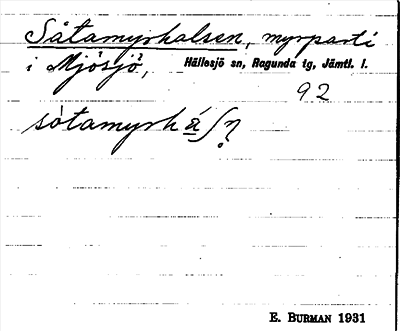 Såtamyrhalsen, myrparti
i Mjösjö, Hällesjö sn, Ragunda tg, Jämtl. l.
92
såtamyrh
E. Burman 1931